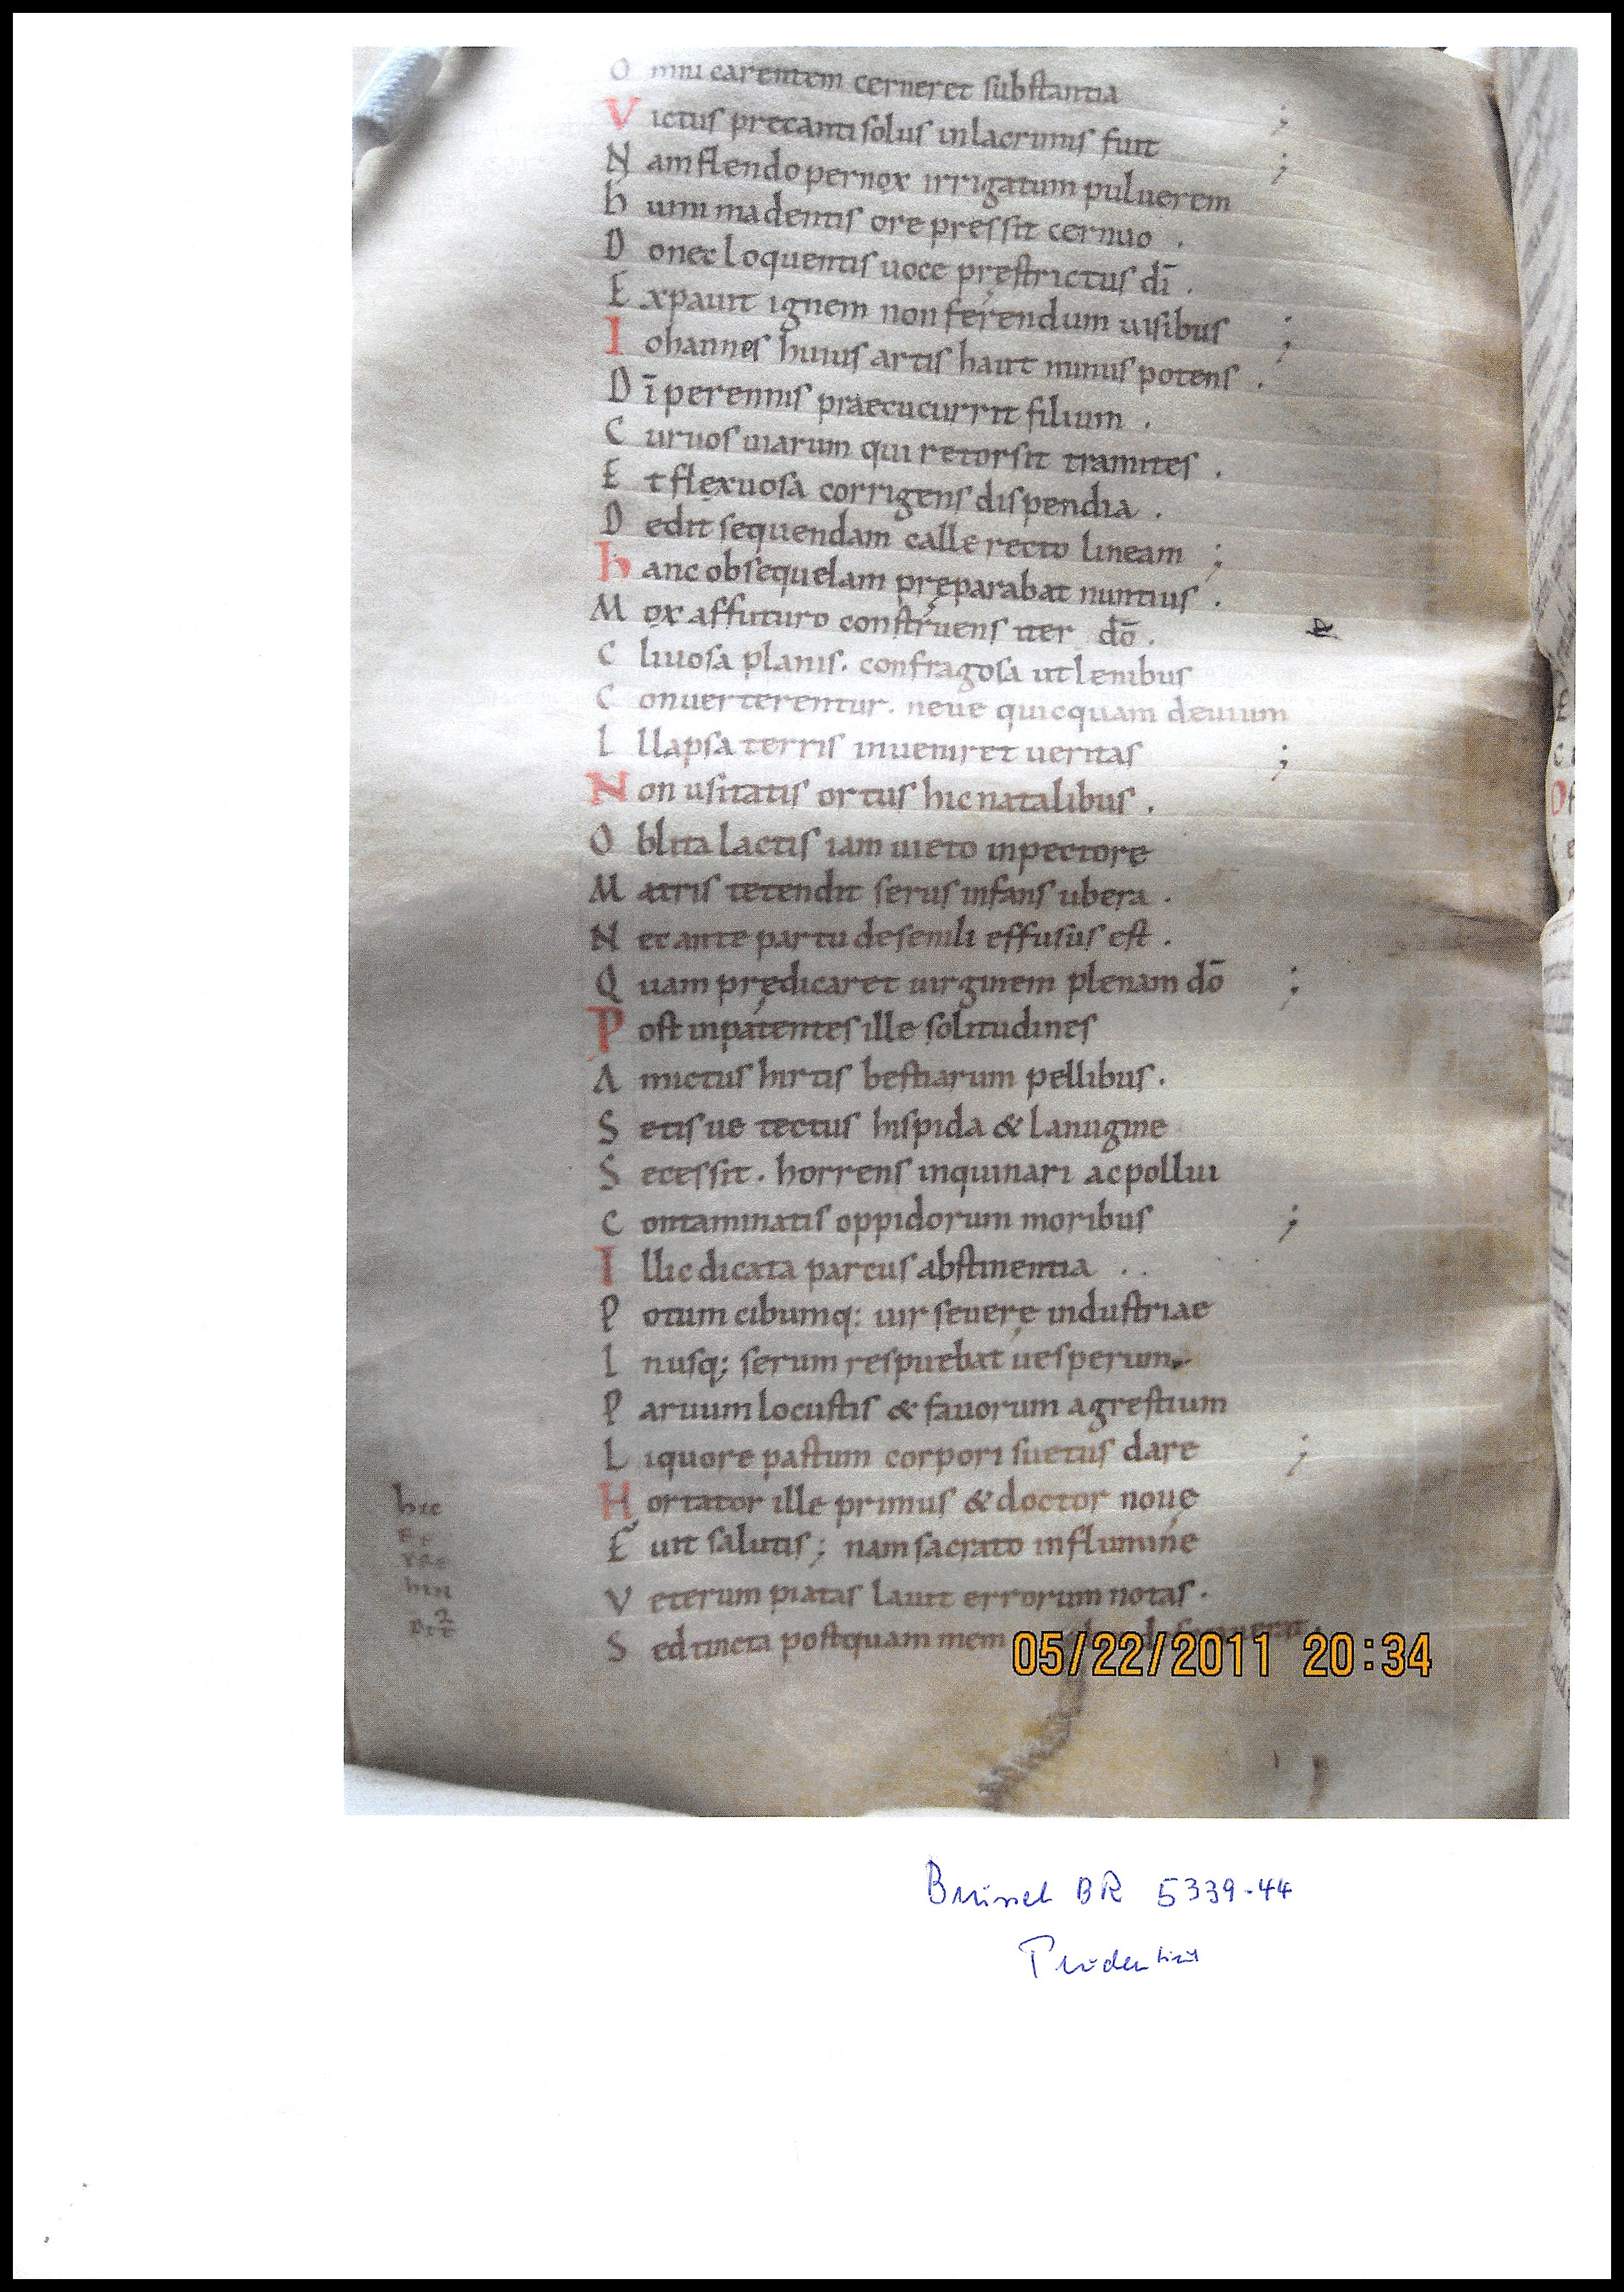 O mni carentem cerneret substantia
V ictus precanti solus inlacrimis fuit ;
N am flendo pernox irrigatum puluerem ;
h umi madentis ore pressit cernuo .
D onec loquentis uoce pręstrictus dī .
E xpauit ignem non ferendum uisibus ;
I ohannes huius artis haut minus potens . ;
D ī perennis praecucurrit filium .
C uruos uiarum qui retorsit tramites .
E t flexuosa corrigens dispendia .
D edit sequendam calle recto lineam ;
h anc obsequelam pręparabat nuntius .
M ox affuturo construens iter dō .
C liuosa planis . confragosa ut lenibus
C onuerterentur . neue quicquam deuium
I llapsa terris inueniret ueritas ;
N on usitatis ortus hic natalibus .
O blita lactis iam uieto inpectore
M atris tetendit serus infans ubera .
N ec ante partu de senili effusus est .
Q uam prędicaret uirginem plenam dō ;
P ost inpatentes ille solitudines
A mictus hirtis bestiarum pellibus .
S etisue tectus hispida & lanugine
S ecessit . horrens inquinari ac pollui
C ontaminatis oppidorum moribus ;
I llic dicata parcus abstinentia . .
P otum cibumq: uir seuerę industriae
I nusq; serum respuebat uesperum .
P aruum locustis & fauorum agrestium
L iquore pastum corpori suetus dare ;
hic
H ortator ille primus & doctor nouę
F uit salutis ; nam sacrato influmine
V eterum piatas lauit errorum notas .
S ed tincta postquam mem
05/22/2011 20:34
Brüssel BR 5339-44
Prudentius